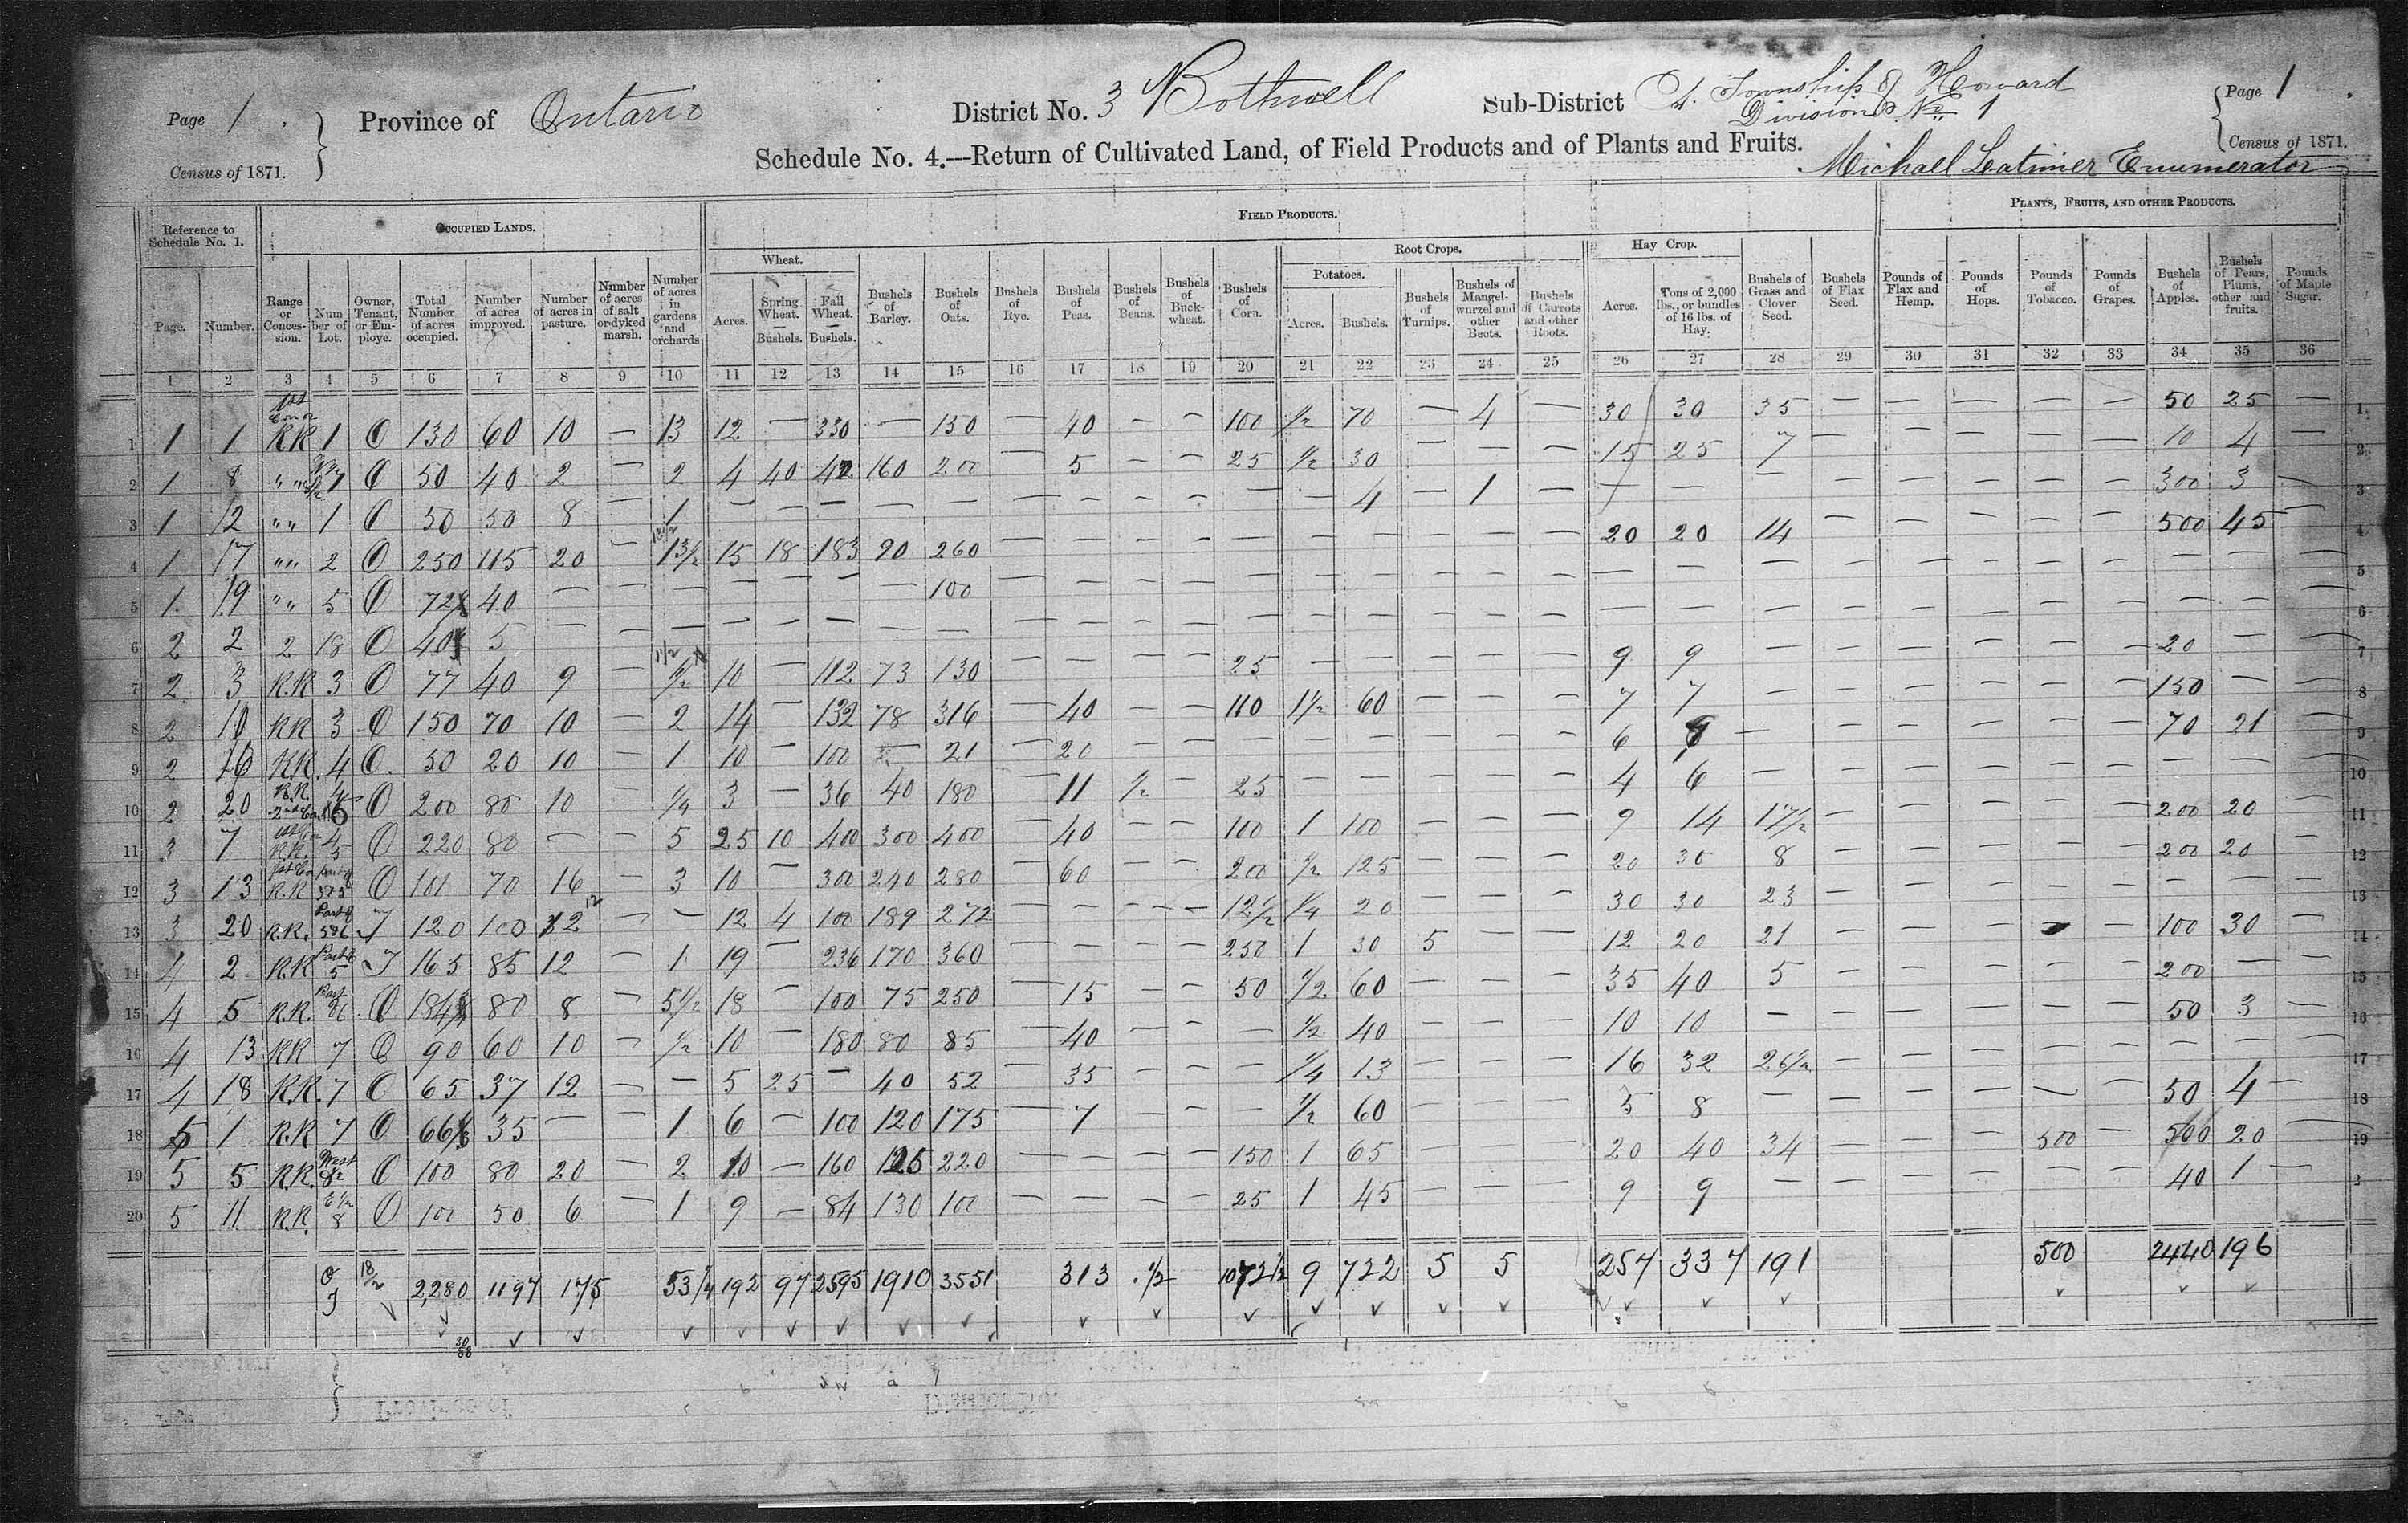 Page 1. Province of Ontario District No. 3 Bothwell Sub-District A. Township of Howard Page 1.
Division No 1
Census of 1871. Schedule No. 4.—Return of Cultivated Land, of Field Products and of Plants and Fruits. Census of 1871.
Michael Latimer Enumerator
Reference to Schedule No. 1. OCCUPIED LANDS. FIELD PRODUCTS. PLANTS, FRUITS, AND OTHER PRODUCTS.
Wheat. Root Crops. Hay Crop.
Potatoes.
Page. Number. Range or Concession. Number of Lot. Owner, Tenant, or Employe. Total Number of acres occupied. Number of acres improved. Number of acres in pasture. Number of acres of salt or dyked marsh. Number of acres in gardens and orchards Acres. Spring Wheat. Bushels. Fall Wheat. Bushels. Bushels of Barley. Bushels of Oats. Bushels of Rye. Bushels of Peas. Bushels of Beans. Bushels of Buckwheat. Bushels of Corn. Acres. Bushels. Bushels of Turnips. Bushels of Mangel-wurzel and other Beets. Bushels of Carrots and other Roots. Acres. Tons of 2,000 lbs., or bundles of 16 lbs. of Hay. Bushels of Grass and Clover Seed. Bushels of Flax Seed. Pounds of Flax and Hemp. Pounds of Hops. Pounds of Tobacco. Pounds of Grapes. Bushels of Apples. Bushels of Pears, Plums, other and fruits. Pounds of Maple Sugar.
1 2 3 4 5 6 7 8 9 10 11 12 13 14 15 16 17 18 19 20 21 22 23 24 25 26 27 28 29 30 31 32 33 34 35 36
1 1 1 1st Con or RR 1 O 130 60 10 — 13 12 — 330 — 150 — 40 — — 100 1/2 70 — 4 — 30 30 35 — — — — — 50 25 — 1
2 1 8 " " 7 O 50 40 2 — 2 4 40 42 160 200 — 5 — — 25 1/2 30 — — — 15 25 7 — — — — — 10 4 — 2
3 1 12 " " 1 O 50 50 8 — 1 — — — — — — — — — — — 4 — 1 — — — — — — — — — 300 3 — 3
4 1 17 " " 2 O 250 115 20 — 13 1/2 15 18 183 90 260 — — — — — — — — — — 20 20 14 — — — — — 500 45 — 4
5 1 19 " " 5 O 72 40 — — — — — — — 100 — — — — — — — — — — — — — — — — — — — — — 5
6 2 2 2 18 O 40 5 — — — — — — — — — — — — — — — — — — — — — — — — — — — — — 6
7 2 3 R.R 3 O 77 40 9 — 1 1/2 10 — 112 73 130 — — — — 25 — — — — — 9 9 — — — — — — 20 — — 7
8 2 10 RR 3 O 150 70 10 — 2 14 — 132 78 316 — 40 — — 110 1 1/2 60 — — — 7 7 — — — — — — 150 — — 8
9 2 16 R.R. 4 O. 50 20 10 — 1 10 — 100 — 21 — 20 — — — — — — — — 6 8 — — — — — — 70 21 — 9
10 2 20 R.R. 4 2nd Con 15 O 200 80 10 — 1/4 3 — 36 40 180 — 11 1/2 — 25 — — — — — 4 6 — — — — — — — — — 10
11 3 7 1st Con R.R. 4 5 O 220 80 — — 5 25 10 400 300 400 — 40 — — 100 1 100 — — — 9 14 17 1/2 — — — — — 200 20 — 11
12 3 13 1st Con R.R O 101 70 16 — 3 10 — 300 240 280 — 60 — — 200 1/2 125 — — — 20 30 8 — — — — — 200 20 — 12
13 3 20 R.R. Part of 5&6 T 120 100 12 — — 12 4 100 189 272 — — — — 12 1/2 1/4 20 — — — 30 30 23 — — — — — — — — 13
14 4 2 R.R Part of 5 T 165 85 12 — 1 19 — 236 170 360 — — — — 250 1 30 5 — — 12 20 21 — — — — — 100 30 — 14
15 4 5 R.R. Part O 184 80 8 — 5 1/2 18 — 100 75 250 — 15 — — 50 1/2 60 — — — 35 40 5 — — — — — 200 — — 15
16 4 13 RR 7 O 90 60 10 — 1/2 10 — 180 80 85 — 40 — — — 1/2 40 — — — 10 10 — — — — — — 50 3 — 16
17 4 18 R.R. 7 O 65 37 12 — — 5 25 — 40 52 — 35 — — — 1/4 13 — — — 16 32 26 1/2 — — — — — — — — 17
18 5 1 R.R 7 O 66 35 — — 1 6 — 100 120 175 — 7 — — — 1/2 60 — — — 5 8 — — — — — — 50 4 — 18
19 5 5 R.R. West 1/2 8 O 100 80 20 — 2 10 — 160 125 220 — — — — 150 1 65 — — — 20 40 34 — — — 500 — 500 20 — 19
20 5 11 R.R. E 1/2 8 O 100 50 6 — 1 9 — 84 130 100 — — — — 25 1 45 — — — 9 9 — — — — — — 40 1 —
O T 18/2 2,280 1197 175 53 1/4 192 97 2595 1910 3551 313 1/2 1072 1/2 9 722 5 5 257 337 191 500 2440 196